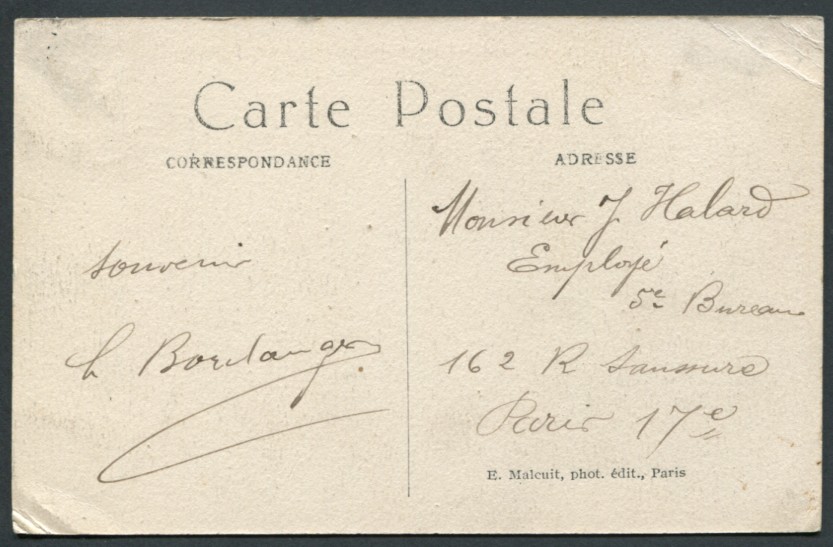 Carte Postale
CORRESPONDANCE
ADRESSE
souvenir
h Boulanger
Monsieur J Halard
Employé
5e Bureau
162 R Saussure
Paris 17e
E. Malcuit, phot. édit., Paris